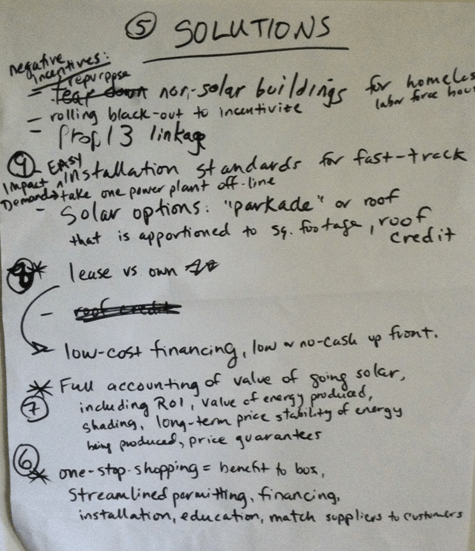 ⑤ SOLUTIONS
negative incentives:
- tear down repurpose non-solar buildings for homeless labor force hou
- rolling black-out to incentivize
- Prop 13 linkage
⑨ - EASY installation standards for fast-track
Impact Demand → take one power plant off-line
- Solar options: "parkade" or roof
that is apportioned to sq. footage, roof
credit
⑧ * lease vs own
- roof credit
→ low-cost financing, low or no-cash up front.
* Full accounting of value of going solar,
⑦ including RoI, value of energy produced,
shading, long-term price stability of energy
being produced, price guarantees
⑥
* one-stop-shopping = benefit to box,
Streamlined permitting, financing,
installation, education, match suppliers to customers